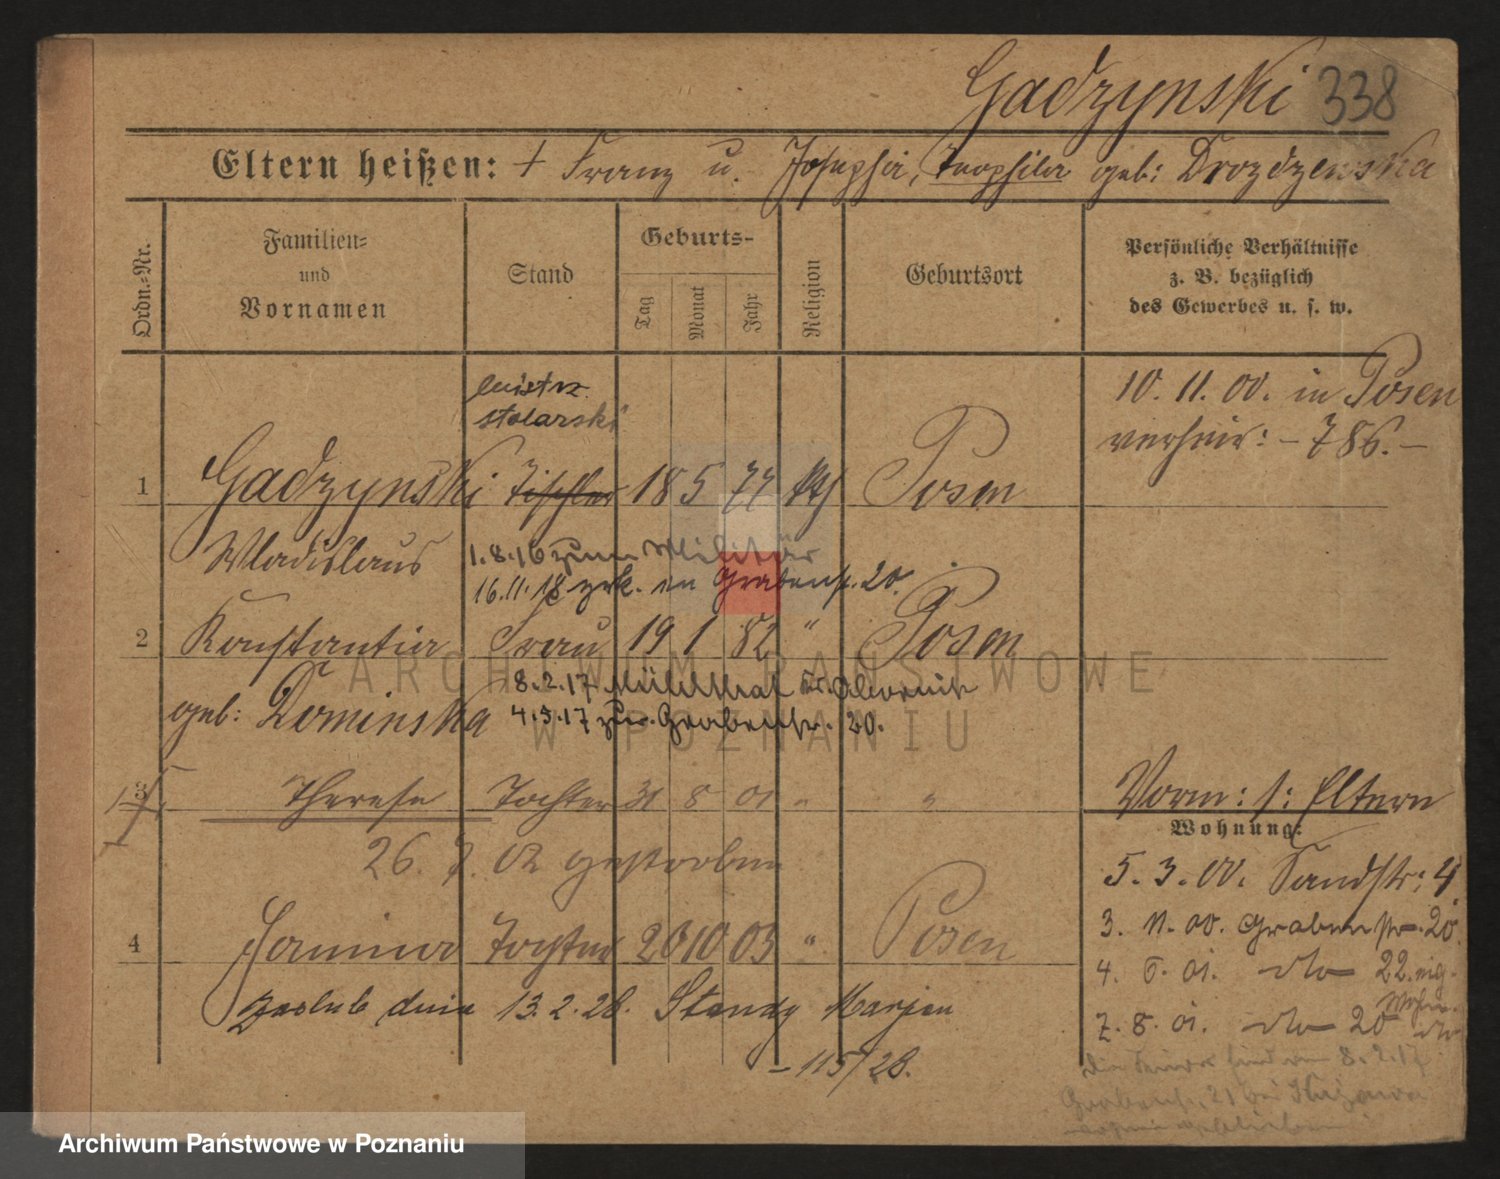 Gadzynski 338
Eltern heißen: + Franz u. Josepha, Teophila geb: Drozdzenska
Ordn.-Nr.
Familien-
und
Vornamen
Stand
Geburts-
Tag
Monat
Jahr
Religion
Geburtsort
Persönliche Verhältnisse
z. B. bezüglich
des Gewerbes u. s. w.
mistrz
stolarski
10. 11. 00. in Posen
verheir: - 786. -
1 Gadzynski Tischler 18 5 77 kth Posen
Wladislaus
1.8.16 zum Militär
16.11.18 zrk. in Grabenstr. 20.
2 Konstantia Frau 19 1 82 " Posen
geb: Dominska
8.2.17 Mühlthal Kr. Obornik
4.5.17 zur. Grabenstr. 20.
3 Therese Tochter 31 8 01 " "
26. 7. 02 gestorben
Vorm: s: Eltern
Wohnung:
5. 3. 00. Sandstr: 4
3. 11. 00. Grabenstr. 20.
4. 6. 01. dto 22. eig.
Wohn.
7. 8. 01. dto 20 dto
4 Janina Tochter 26 10 03 " Posen
zaslub. dnia 13. 2. 28. Marjan
- 115/28.
8. 2. 17
Grabenstr. 21 bei
ARCHIWUM PAŃSTWOWE
W POZNANIU
Archiwum Państwowe w Poznaniu